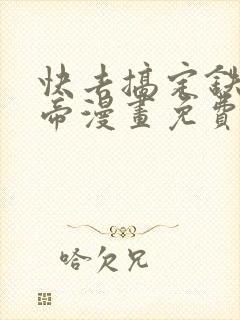 快去搞定鉄
帝漫畫免費
哈欠兄